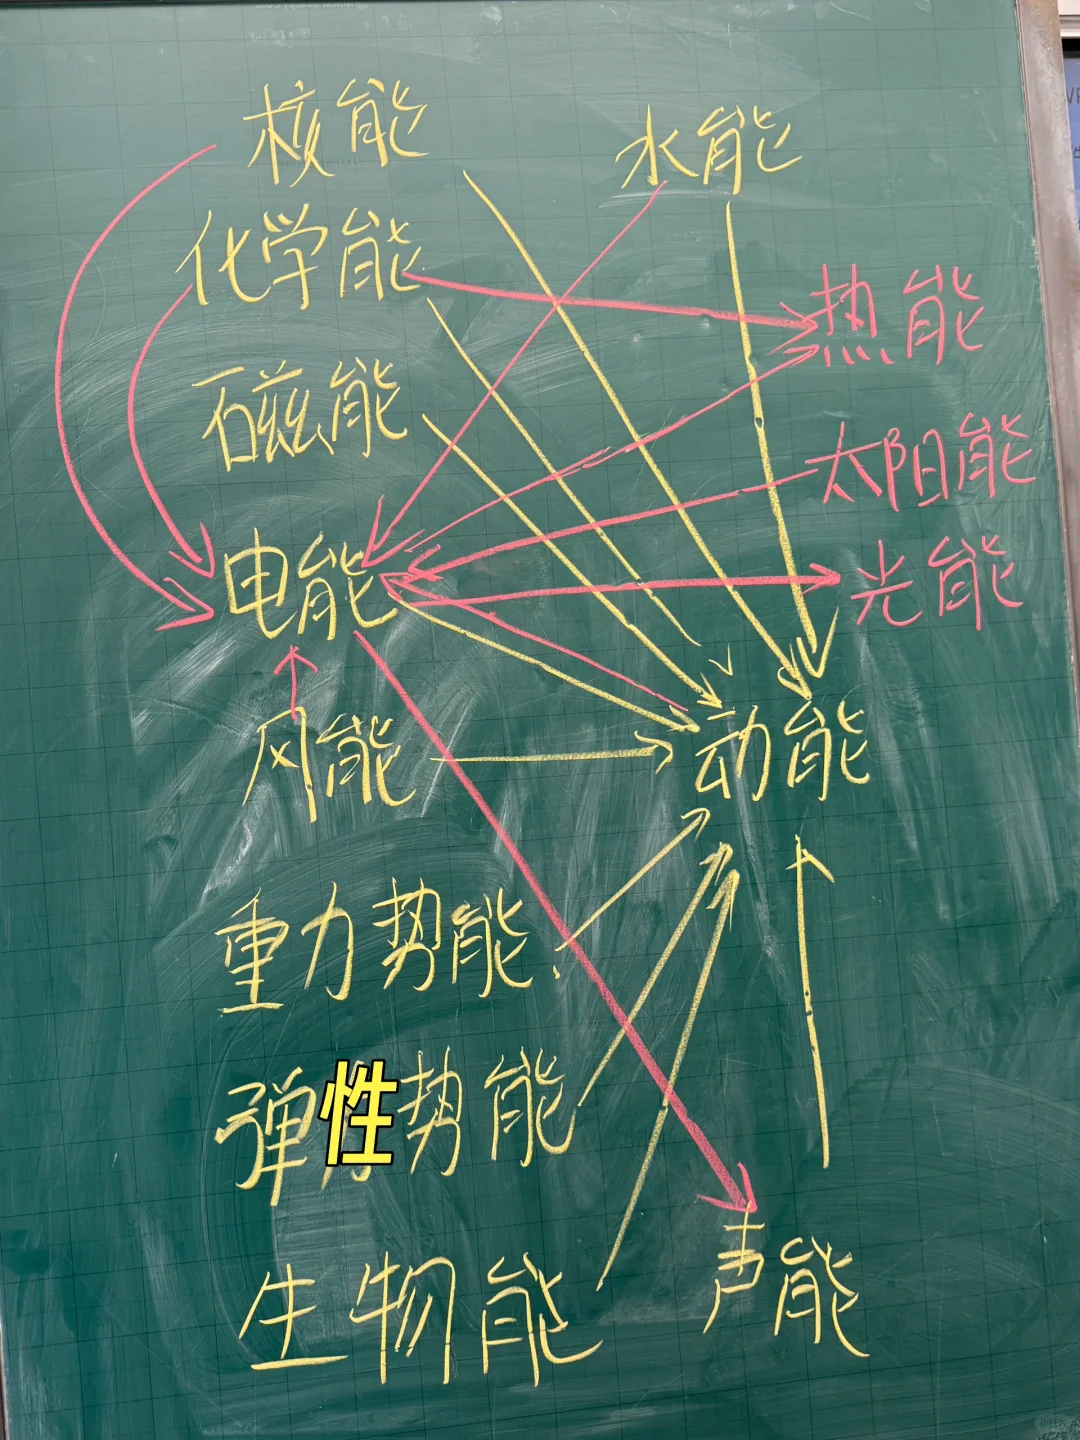 核能
水能
化学能
热能
磁能
太阳能
电能
光能
风能
动能
重力势能
弹性势能
生物能
声能